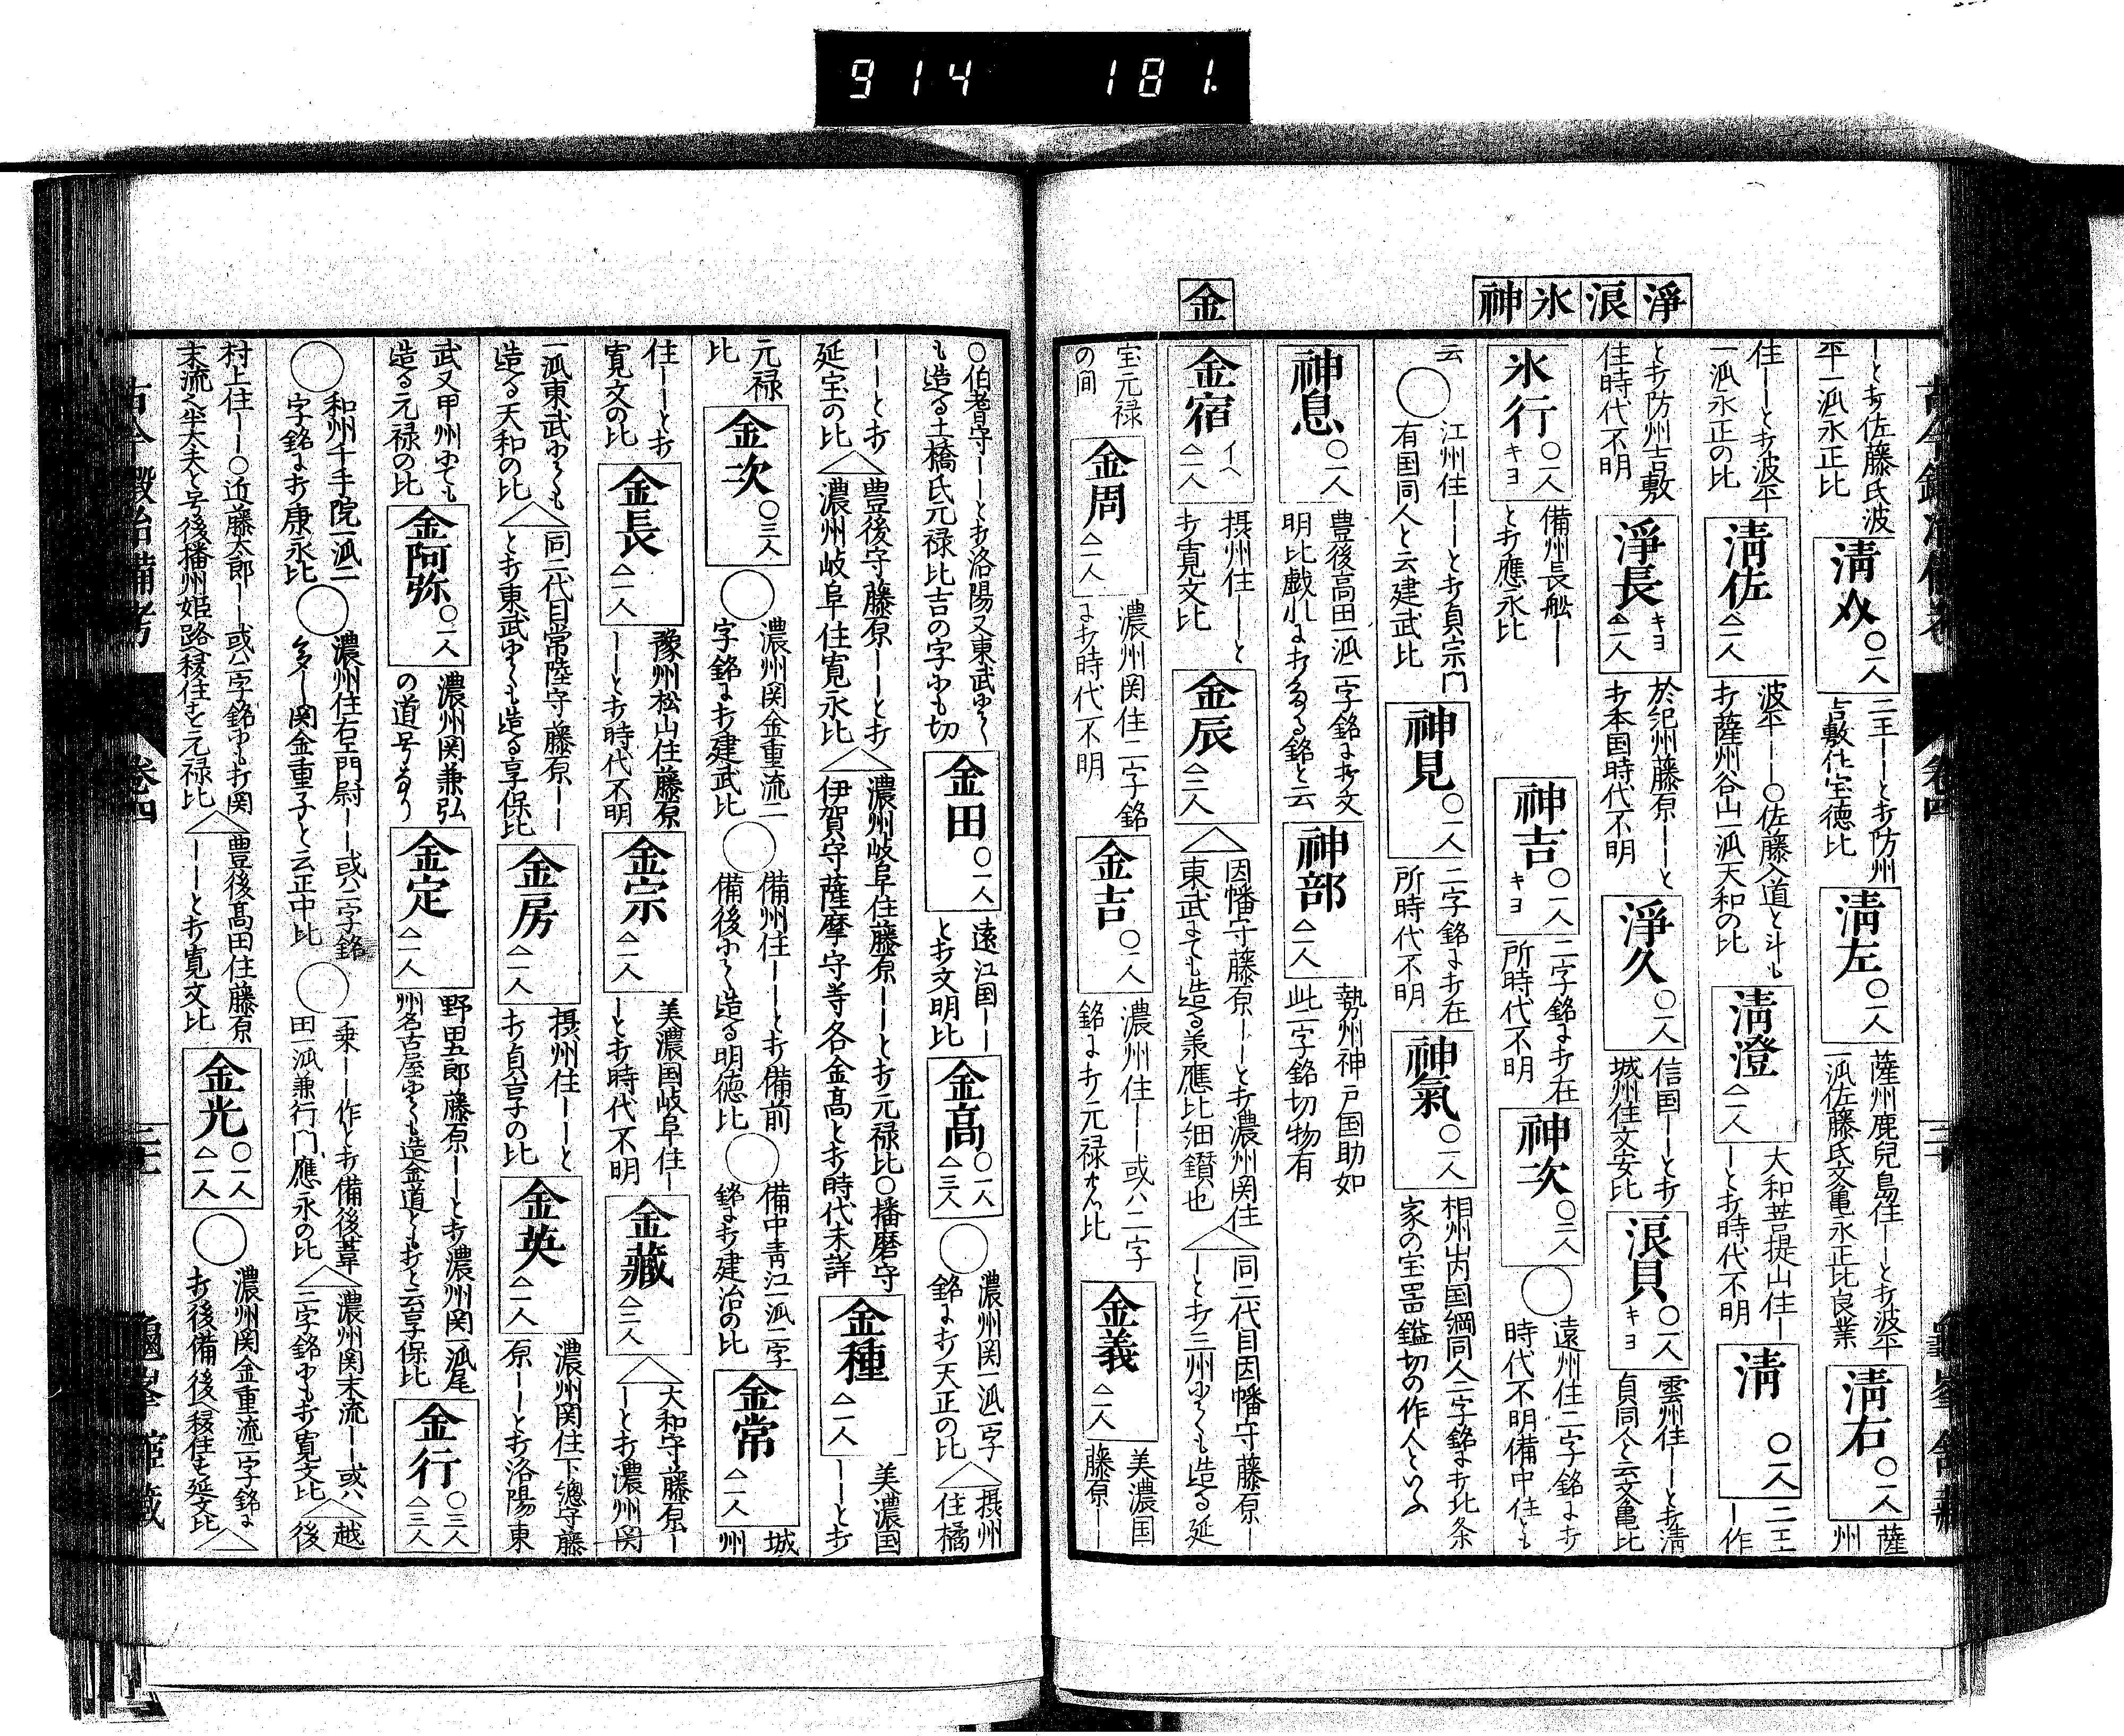 914 181.
淨 浪 氷 神
金
ーと打佐藤氏波
平一派永正比
清𠆢 〇一人
二王ーーと打防州
吉敷住宝徳比
清左 〇一人
薩州鹿兒島住ーーと打波平
一派佐藤氏文亀永正比良業
清右 〇一人
薩州
住ーーと打波平
一派永正の比
清佐 △一人
波平ーー〇佐藤入道と斗も
打薩州谷山一派天和の比
清澄 △一人
大和菩提山住ー
ーと打時代不明
清 〇一人
二王
ー作
と打防州吉敷
住時代不明
淨長 キヨ △一人
於紀州藤原ーーと
打本国時代不明
淨久 〇一人
信国ーーと打
城州住文安比
浪貝 〇一人 キヨ
雲州住ーーと打清
貞同人と云文亀比
氷行 〇一人 キヨ
備州長舩ー
と打應永比
神吉 〇一人 キヨ
二字銘に打在
所時代不明
神次 〇二人
遠州住二字銘に打
時代不明備中住も
云
江州住ーーと打貞宗門
有国同人と云建武比
神見 〇一人
二字銘に打在
所時代不明
神氣 〇一人
相州山内国綱同人二字銘に打北条
家の宝器鎰切の作人といふ
神息 〇一人
豊後高田一派二字銘に打文
明比戯れに打たる銘と云
神部 △一人
勢州神戸国助如
此二字銘切物有
金宿 イヘ △一人
摂州住ーーと
打寛文比
金辰 △二人
△因幡守藤原ーーと打濃州関住
東武にても造る承應比細鑚也
△同二代目因幡守藤原ー
ーと打三州にても造る延
宝元禄
の間
金周 △一人
濃州関住二字銘
に打時代不明
金吉 〇一人
濃州住ーー或ハ二字
銘に打元禄比
金義 △一人
美濃国
藤原ー
〇伯耆守ーーと打洛陽又東武にて
も造る土橋氏元禄比吉の字にも切
金田 〇一人
遠江国ーー
と打文明比
金髙 〇一人 △三人
〇濃州関一派二字
銘に打天正の比
△摂州
住橘
ーーと打
延宝の比
△豊後守藤原ーーと打
濃州岐阜住寛永比
△濃州岐阜住藤原ーーと打元禄比〇播磨守
伊賀守薩摩守等各金髙と打時代未詳
金種 △一人
美濃国
ーーと打
元禄
比
金次 〇三人
〇濃州関金重流二
字銘に打建武比
〇備州住ーーと打備前
備後にて造る明徳比
〇備中青江一派二字
銘に打建治の比
金常 △一人
城
州
住ーーと打
寛文の比
金長 △一人
豫州松山住藤原
ーーと打時代不明
金宗 △一人
美濃国岐阜住ー
ーと打時代不明
金藏 △二人
△大和守藤原ー
ーと打濃州関
一派東武にても
造る天和の比
△同二代目常陸守藤原ー
と打東武にても造る享保比
金房 △一人
摂州住ーーと
打貞享の比
金英 △一人
濃州関住下總守藤
原ーーと打洛陽東
武又甲州にても
造る元禄の比
金阿弥 〇一人
濃州関兼弘
の道号なり
金定 △一人
野田五郎藤原ーーと打濃州関一派尾
州名古屋にても造金道とも打と云享保比
金行 〇三人 △三人
〇和州千手院一派二
字銘に打康永比
〇濃州住右エ門尉ーー或ハ二字銘
ー関金重子と云正中比
〇一乗ーー作と打備後葦
田一派兼行門應永の比
△濃州関末流ーー或ハ
三字銘にも打寛文比
△越
後
村上住ーー〇近藤太郎ーー或ハ二字銘にも打関
末流又半太夫と号後播州姫路へ移住す元禄比
△豊後髙田住藤原
ーーと打寛文比
金光 〇一人 △一人
〇濃州関金重流二字銘に
打後備後へ移住す延文比
△